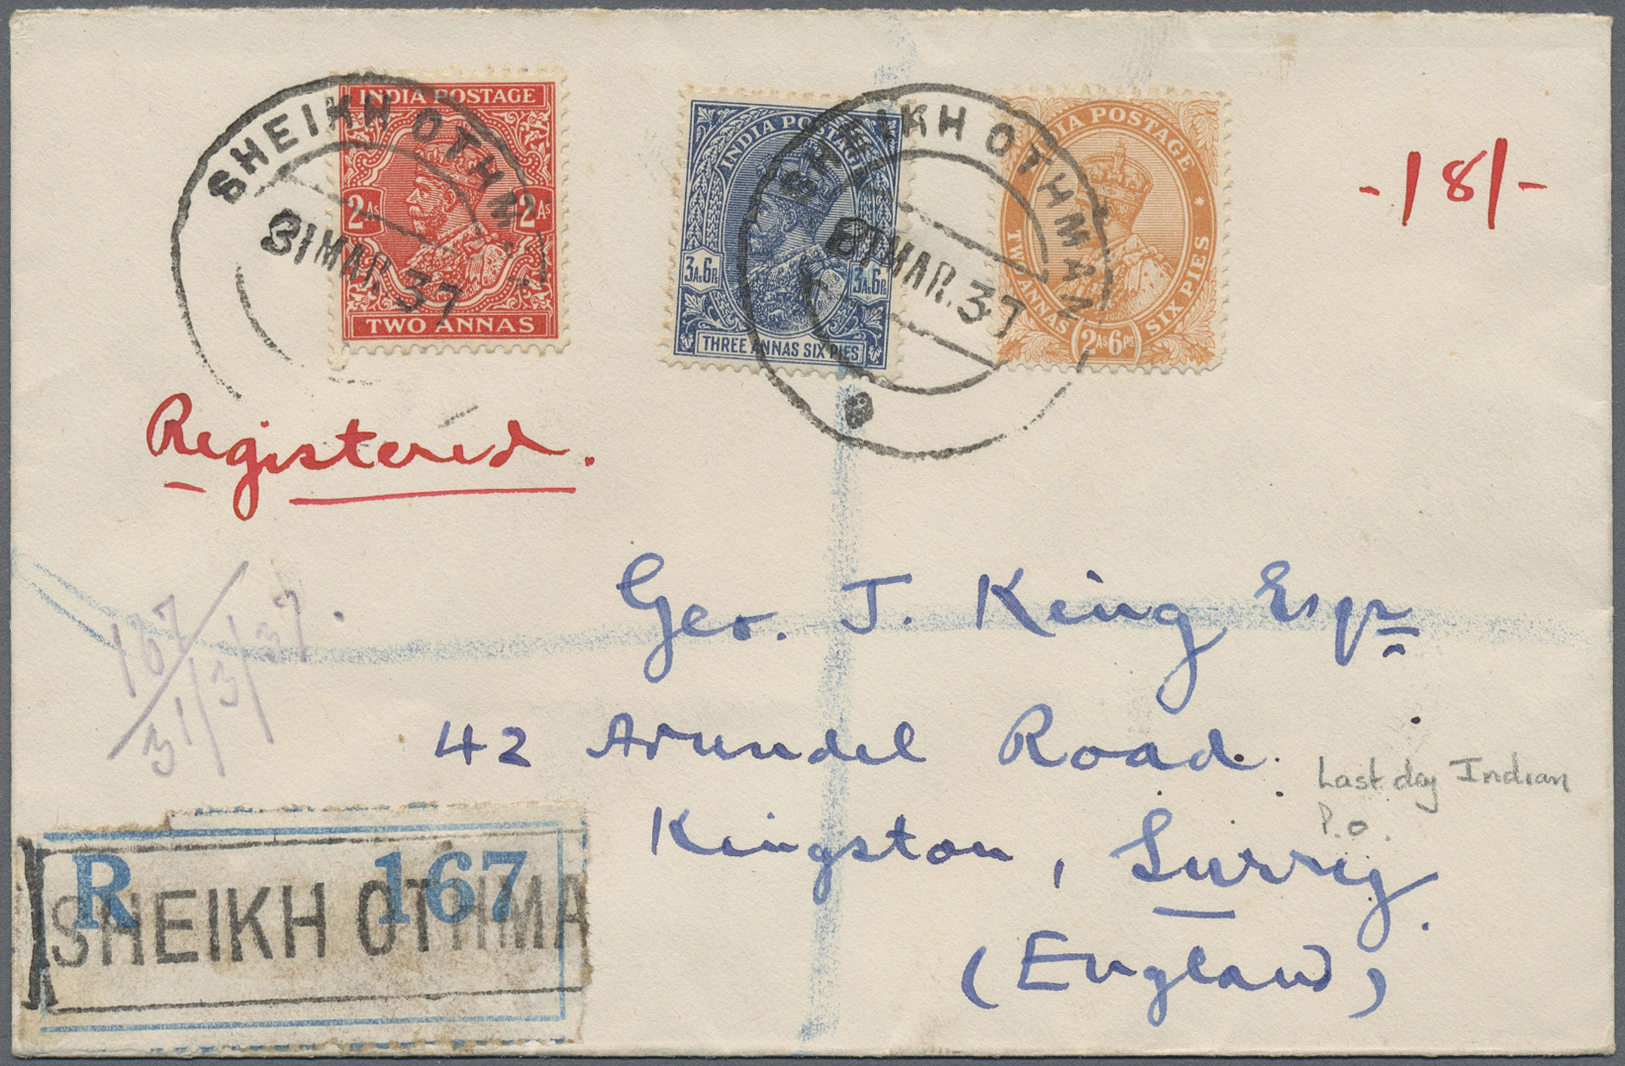 INDIA POSTAGE
2As 2As
TWO ANNAS
INDIA POSTAGE
3A.6P. 3A.6P.
THREE ANNAS SIX PIES
INDIA POSTAGE
TWO ANNAS SIX PIES
2As 6Ps
SHEIKH OTHMAN
31 MAR. 37
SHEIKH OTHMAN
31 MAR. 37
-18/-
Registered.
167
31/3/37.
Geo. J. King Esqr
42 Arundel Road.
Kingston, Surrey.
(England)
Last day Indian
P.O.
R 167
SHEIKH OTHMA